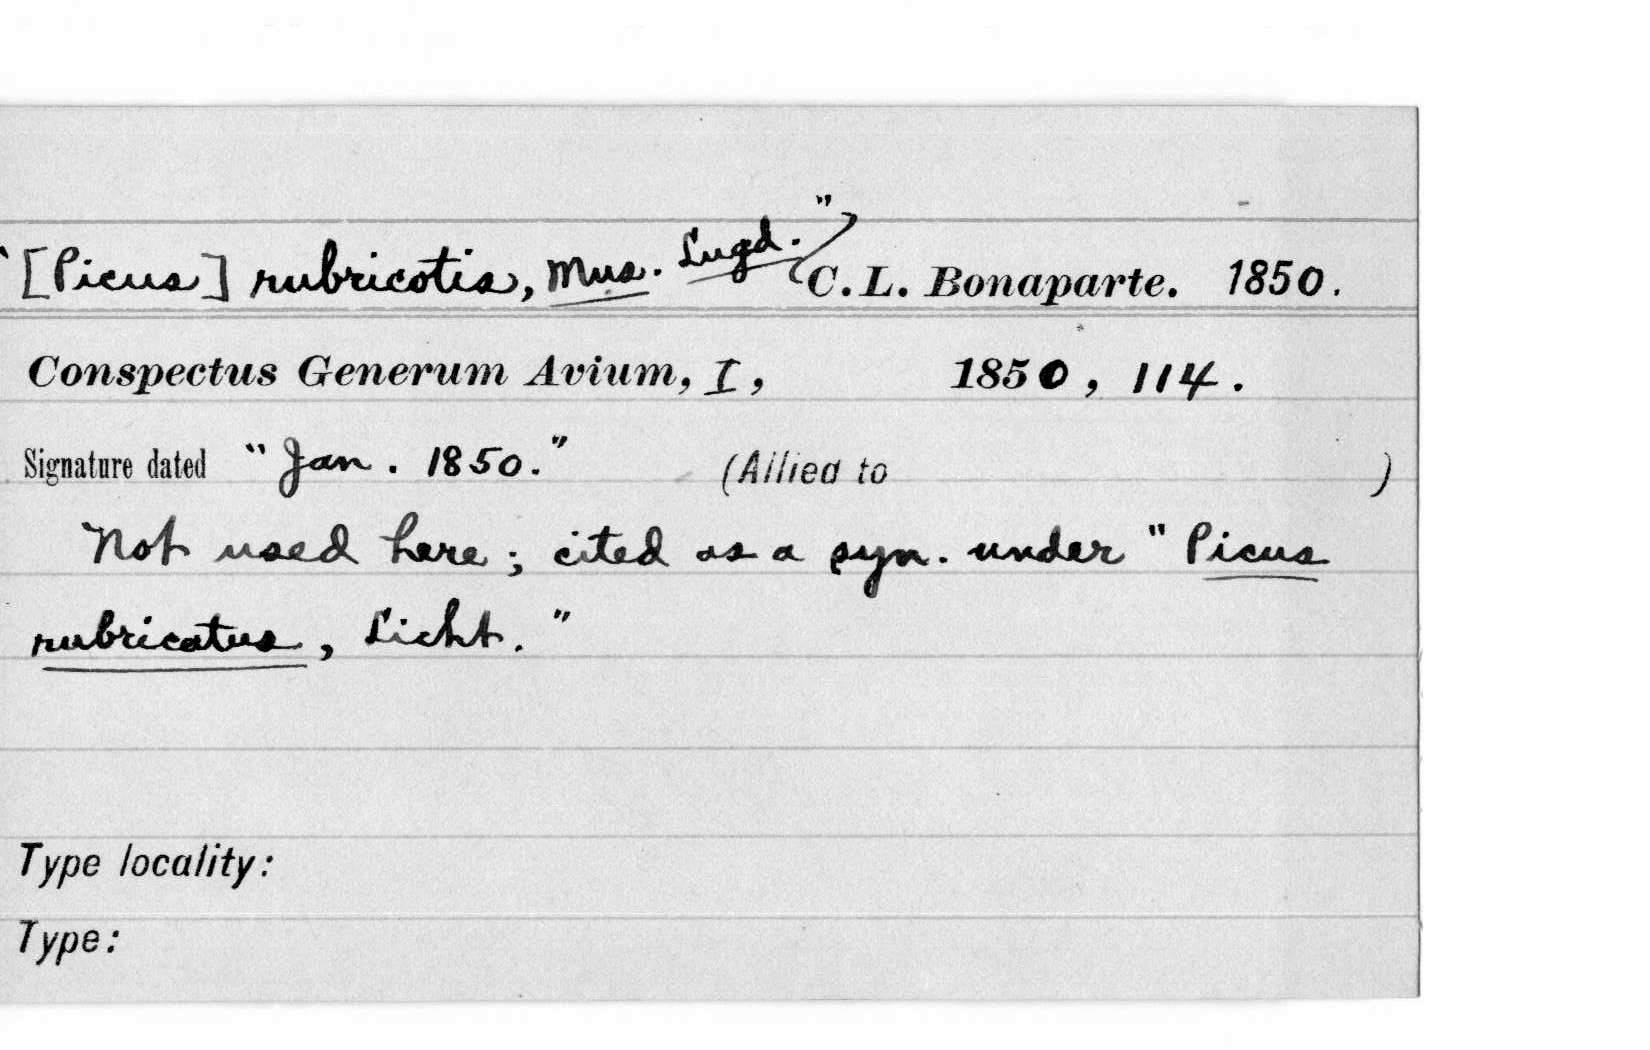 "[Picus] rubricotis, Mus. Lugd." C. L. Bonaparte. 1850.
Conspectus Generum Avium, I, 1850, 114.
Signature dated "Jan. 1850." (Allied to )
Not used here; cited as a syn. under "Picus
rubricatus, Licht."
Type locality:
Type: